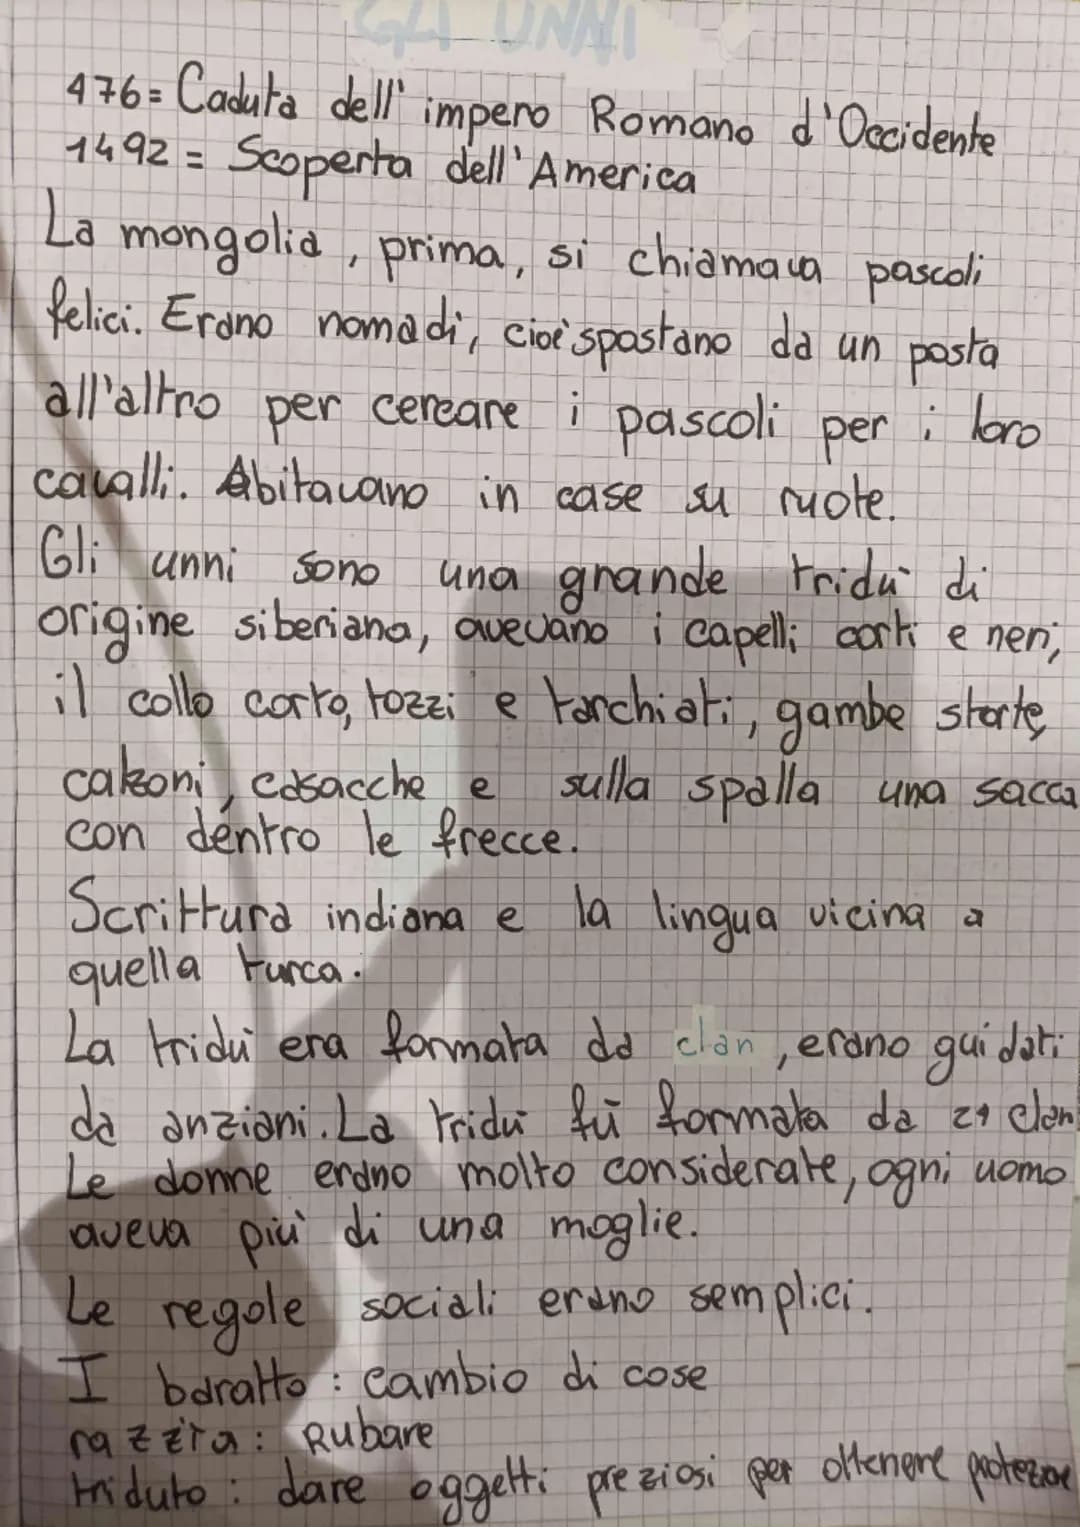 GLI UNNI
476= Caduta dell' impero Romano d'Occidente
1492 = Scoperta dell'America
La mongolia, prima, si chiamava pascoli
felici. Erano nomadi, cioè spostano da un posta
all'altro per cercare i pascoli per i loro
cavalli. Abitavano in case su ruote.
Gli unni sono una grande tridù di
origine siberiana, avevano i capelli corti e neri,
il collo corto, tozzi e tarchiati, gambe storte,
calzoni, casacche e sulla spalla una sacca
con dentro le frecce.
Scrittura indiana e la lingua vicina a
quella turca.
La tridù era formata da clan, erano guidati
da anziani. La tridù fù formata da 24 clan
Le donne erano molto considerate, ogni uomo
aveva più di una moglie.
Le regole sociali erano semplici.
I baratto: cambio di cose
razzia: Rubare
triduto: dare oggetti preziosi per ottenere protezione